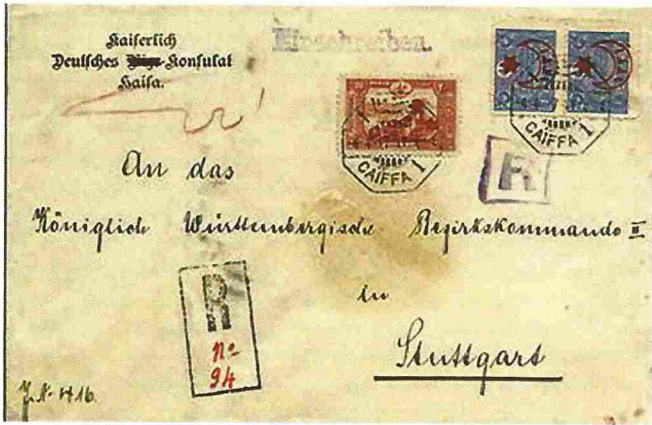 Kaiserlich
Deutsches Vize-Konsulat
Haifa.
Einschreiben.
CAIFFA 1
CAIFFA 1
R
An das
Königlich Württembergische Bezirkskommando II
in
Stuttgart
R
No
94
J.N. 416.